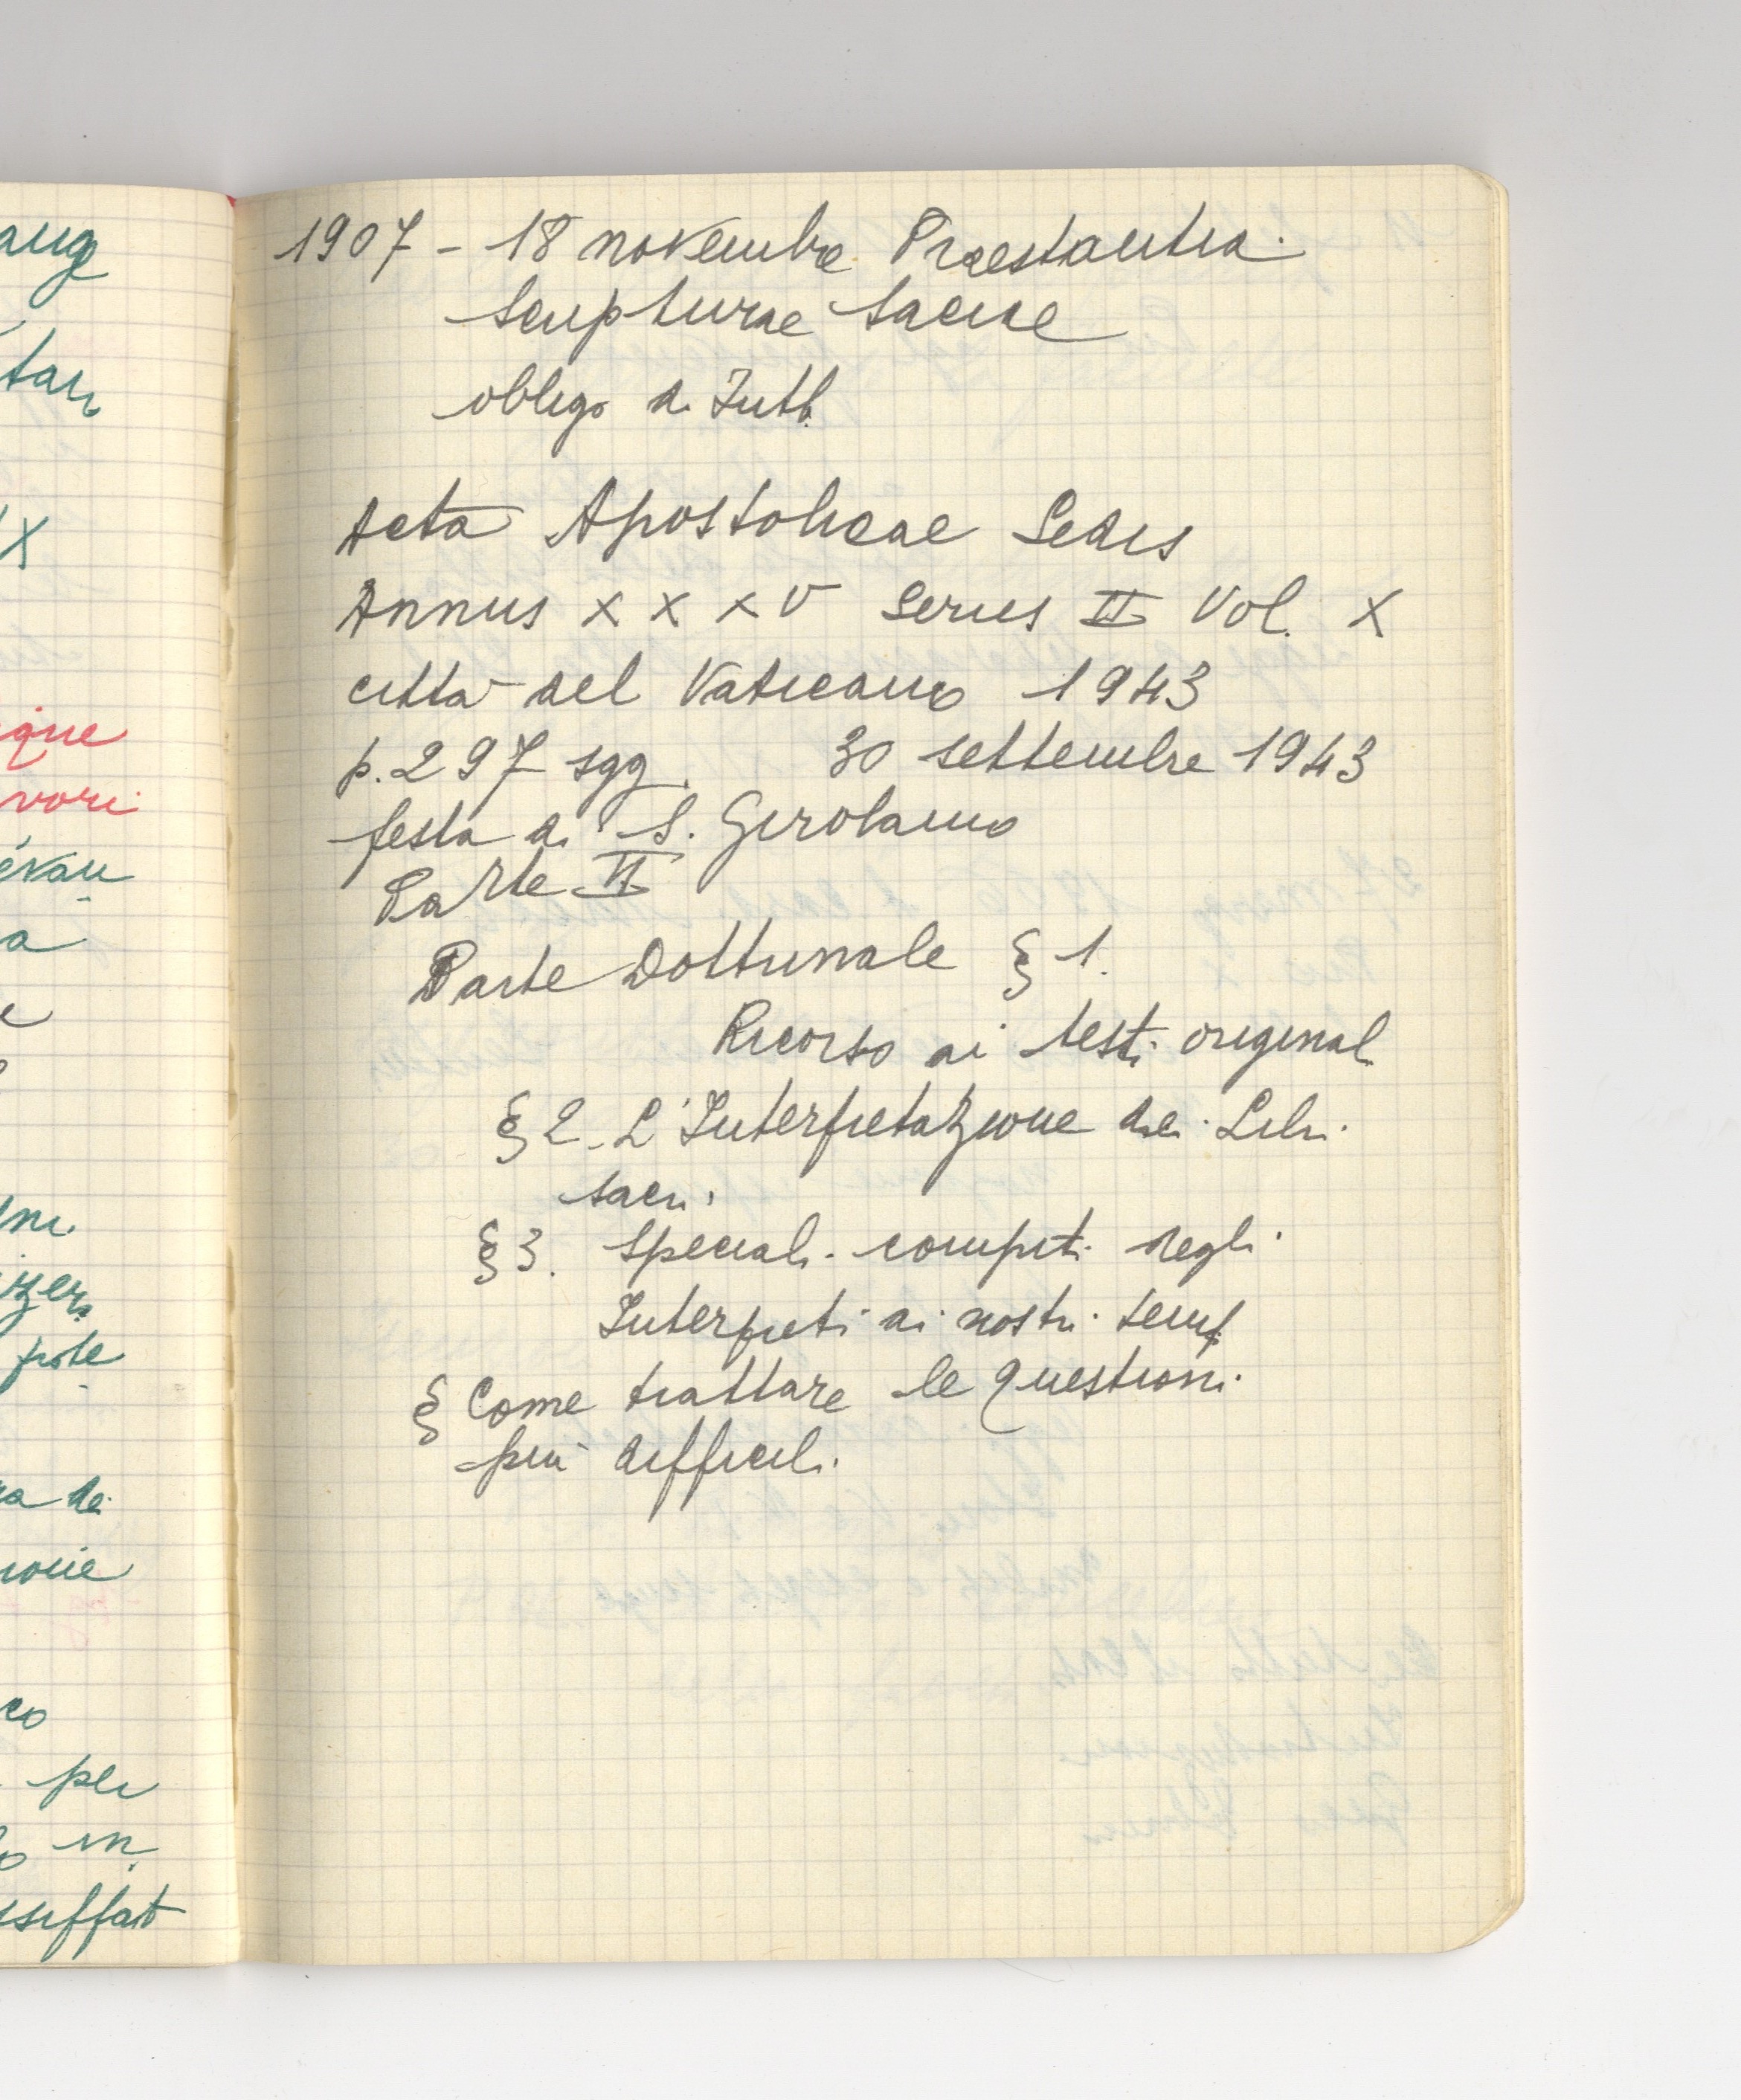 aug
tari
X
ique
vori
évan
a
e
izer
pote
a dei
ione
co
per
o in
ssiffat
1907 - 18 novembre Praestantia
scripturae sacrae
obbligo di Intt.
Acta Apostolicae Sedis
Annus XXXV Series II Vol. X
città del Vaticano 1943
p. 297 sgg. 30 settembre 1943
festa di S. Girolamo
Parte II
Parte Dottrinale § 1.
Ricorso ai testi originali
§ 2. L'Interpretazione dei Libri
sacri.
§ 3. Speciali compiti degli
Interpreti ai nostri tempi
§ Come trattare le questioni
più difficili.